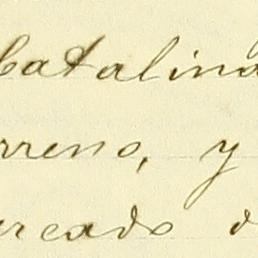 Catalina
rreno, y
ercado d